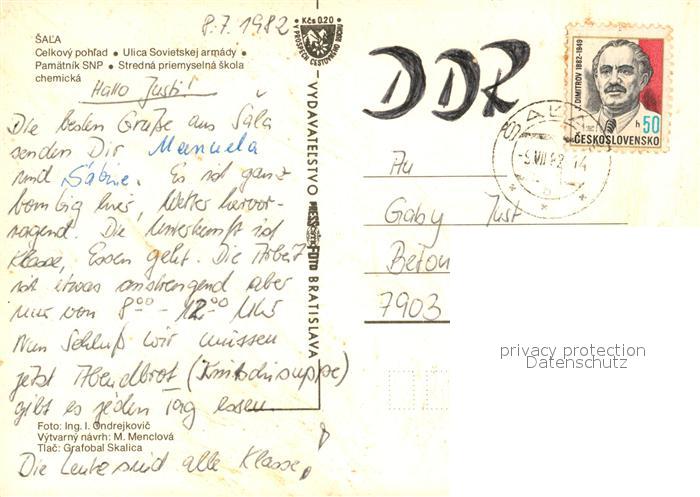 8.7.1982
Kčs 0.20
V PROSPĚCH CESTOVNÉHO RUCHU
ŠAĽA
Celkový pohľad • Ulica Sovietskej armády •
Pamätník SNP • Stredná priemyselná škola
chemická
Hallo Justi!
Die besten Grüße aus Šala
senden Dir Manuela
und Sabine. Es ist ganz
bombig hier, Wetter hervor-
ragend. Die Unterkunft ist
Klasse, Essen geht. Die Arbeit
ist etwas anstrengend aber
nur von 8⁰⁰ - 12⁰⁰ Uhr
Nun Schluß wir müssen
jetzt Abendbrot
gibt es jeden Tag essen
Die Leute sind alle Klasse!
Foto: Ing. I. Ondrejkovič
Výtvarný návrh: M. Menclová
Tlač: Grafobal Skalica
VYDAVATEĽSTVO PRESSFOTO BRATISLAVA
DDR
J. DIMITROV 1882-1949
h 50
ČESKOSLOVENSKO
ŠAĽA
-9.VII.82 14
b
An
Gaby Just
Beton
7903
privacy protection
Datenschutz